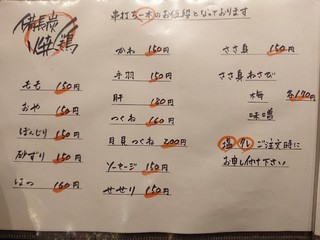 備長炭
焼鶏
串打ち一本のお値段となっております
もも 150円
おや 150円
ぼんじり 150円
砂ずり 150円
はつ 160円
かわ 150円
手羽 150円
肝 180円
つくね 160円
月見つくね 200円
ソーセージ 150円
せせり 150円
ささ身 150円
ささ身わさび
梅 各170円
味噌
塩 タレ ご注文時に
お申し付け下さい